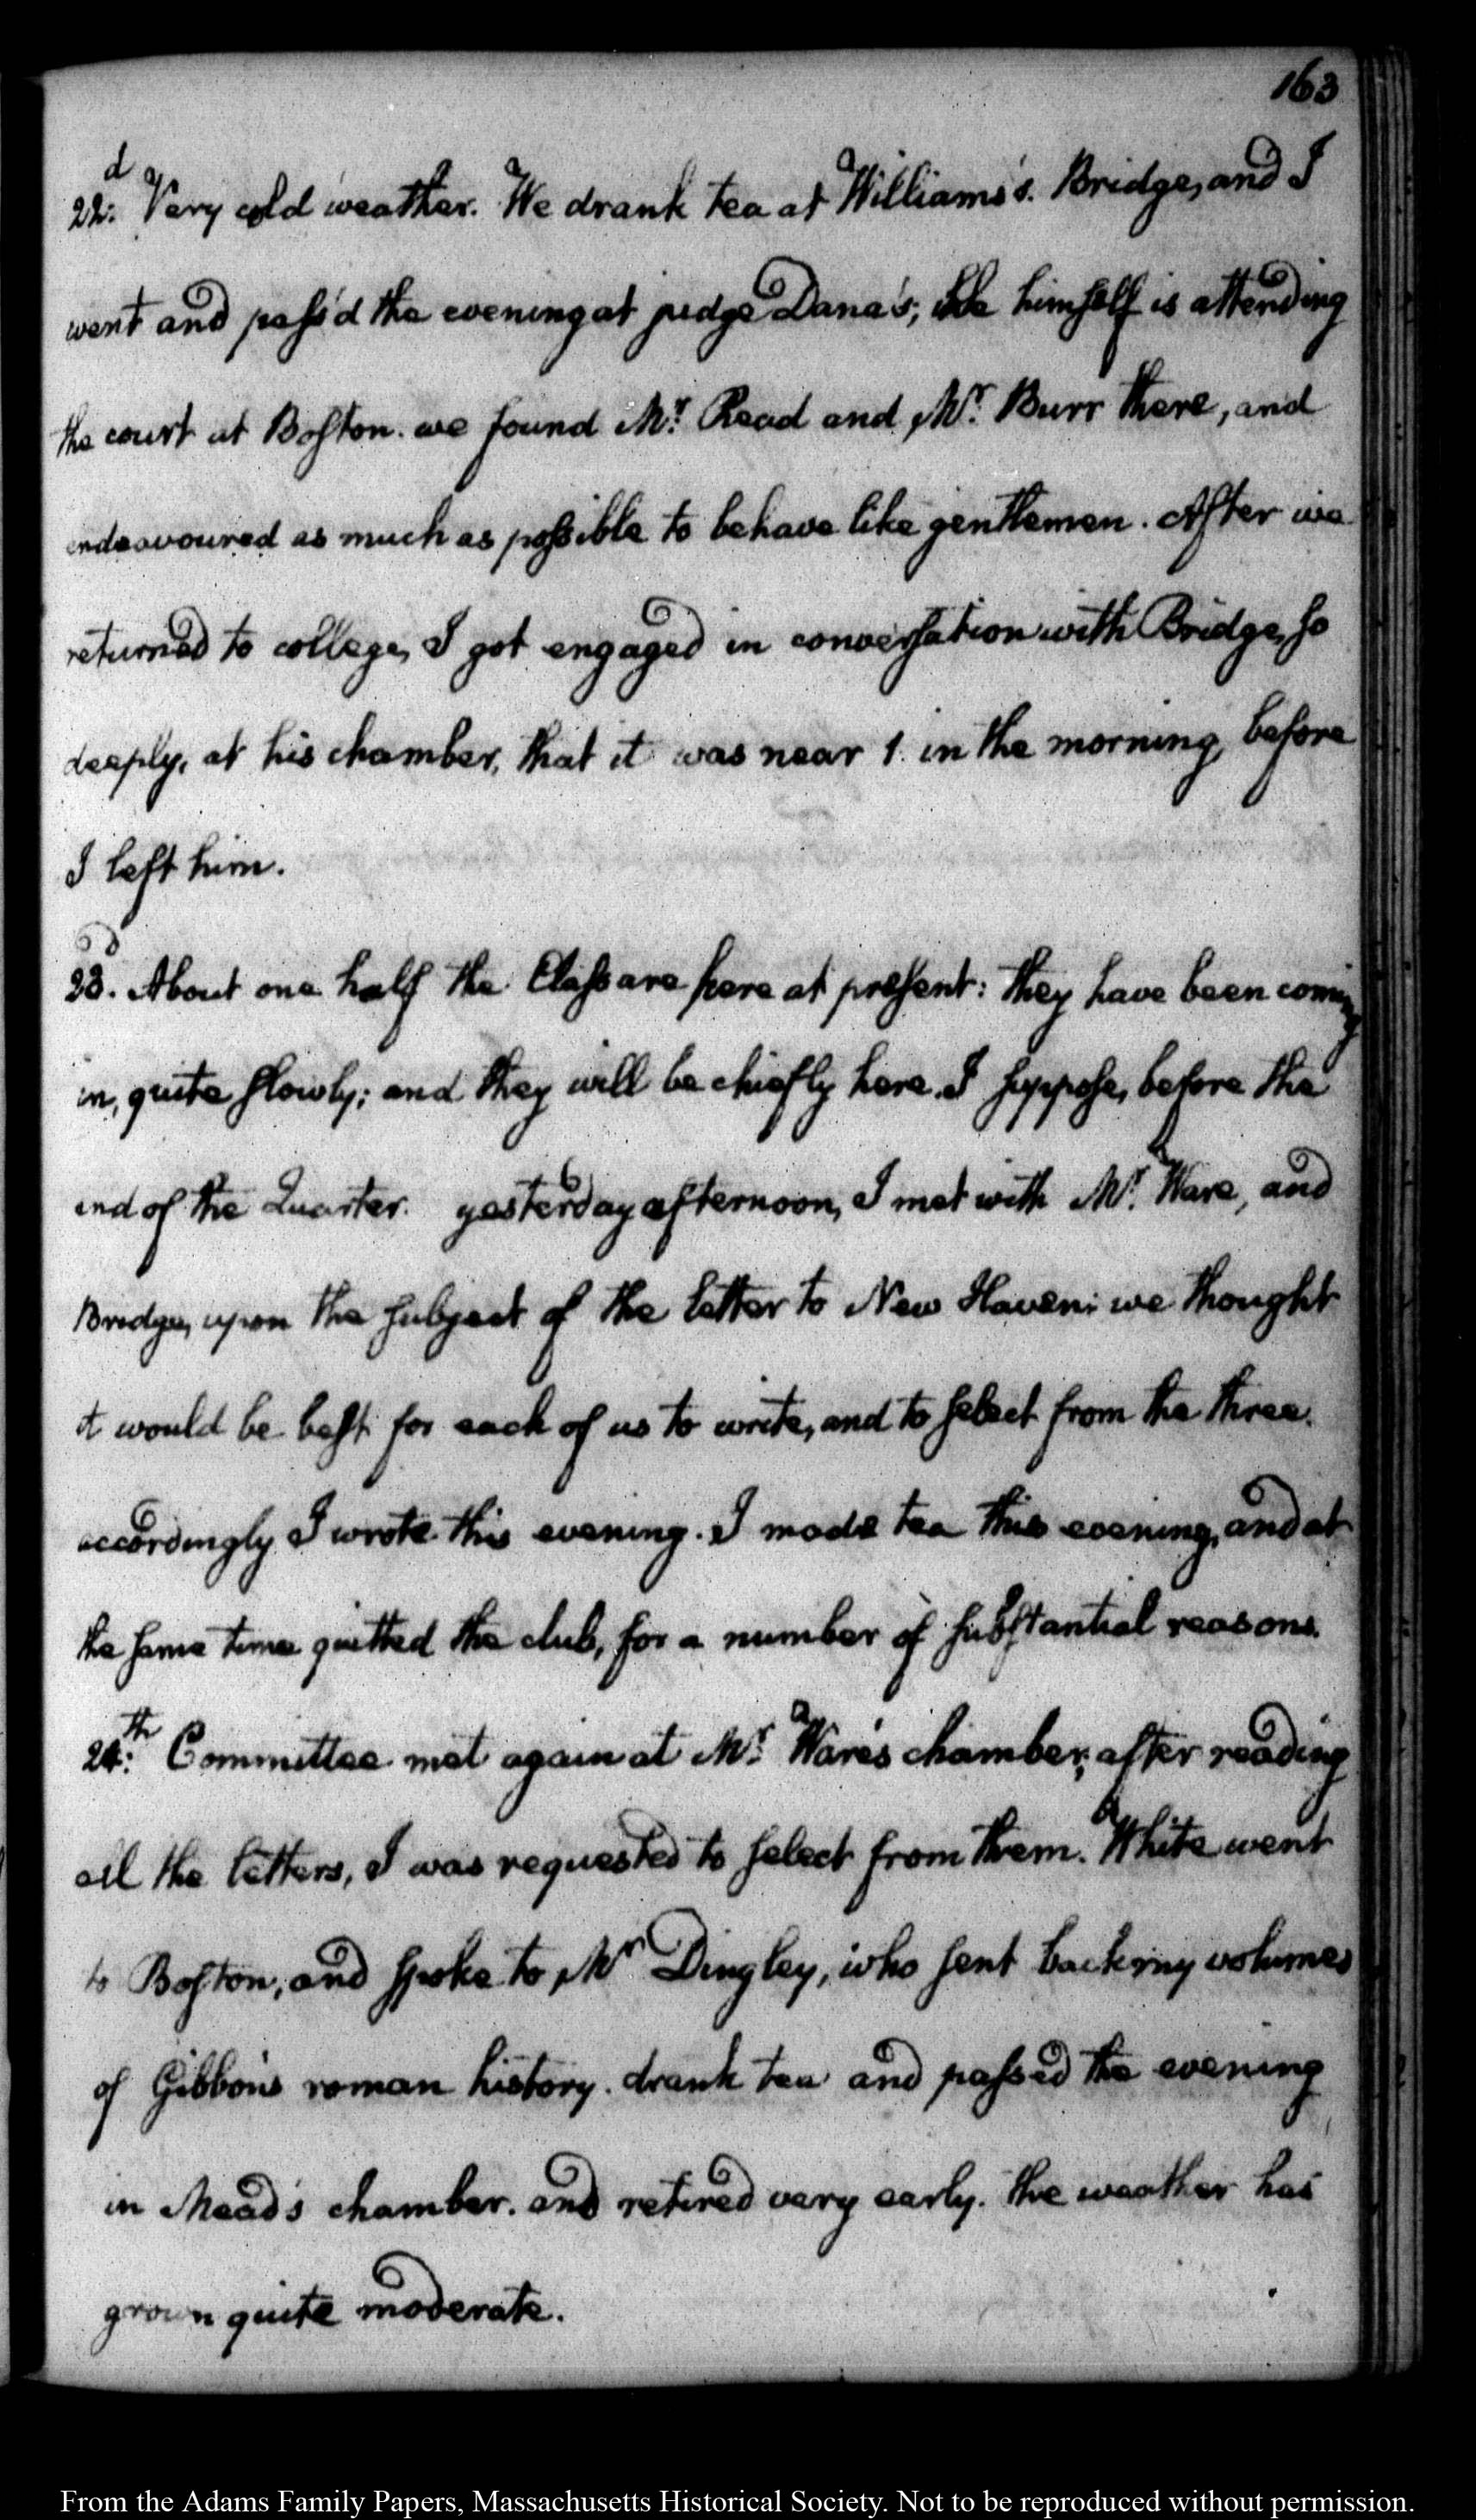 163
22.d Very cold weather. We drank tea at Williams's. Bridge, and I
went and pass'd the evening at judge Dana's; he himself is attending
the court at Boston. we found Mr. Read and Mr. Burr there, and
endeavoured as much as possible to behave like gentlemen. After we
returned to college, I got engaged in conversation with Bridge, so
deeply, at his chamber, that it was near 1. in the morning, before
I left him.
23.d About one half the Class are here at present: they have been coming
in, quite slowly; and they will be chiefly here. I suppose, before the
end of the Quarter. yesterday afternoon, I met with Mr. Ware, and
Bridge, upon the subject of the letter to New Haven: we thought
it would be best for each of us to write, and to select from the three.
accordingly I wrote this evening. I made tea this evening, and at
the same time quitted the club, for a number of substantial reasons.
24.th Committee met again at Mr. Ware's chamber; after reading
all the letters, I was requested to select from them. White went
to Boston, and spoke to Mr Dingley, who sent back my volumes
of Gibbon's roman history. drank tea and passed the evening
in Mead's chamber. and retired very early. the weather has
grown quite moderate.
From the Adams Family Papers, Massachusetts Historical Society. Not to be reproduced without permission.